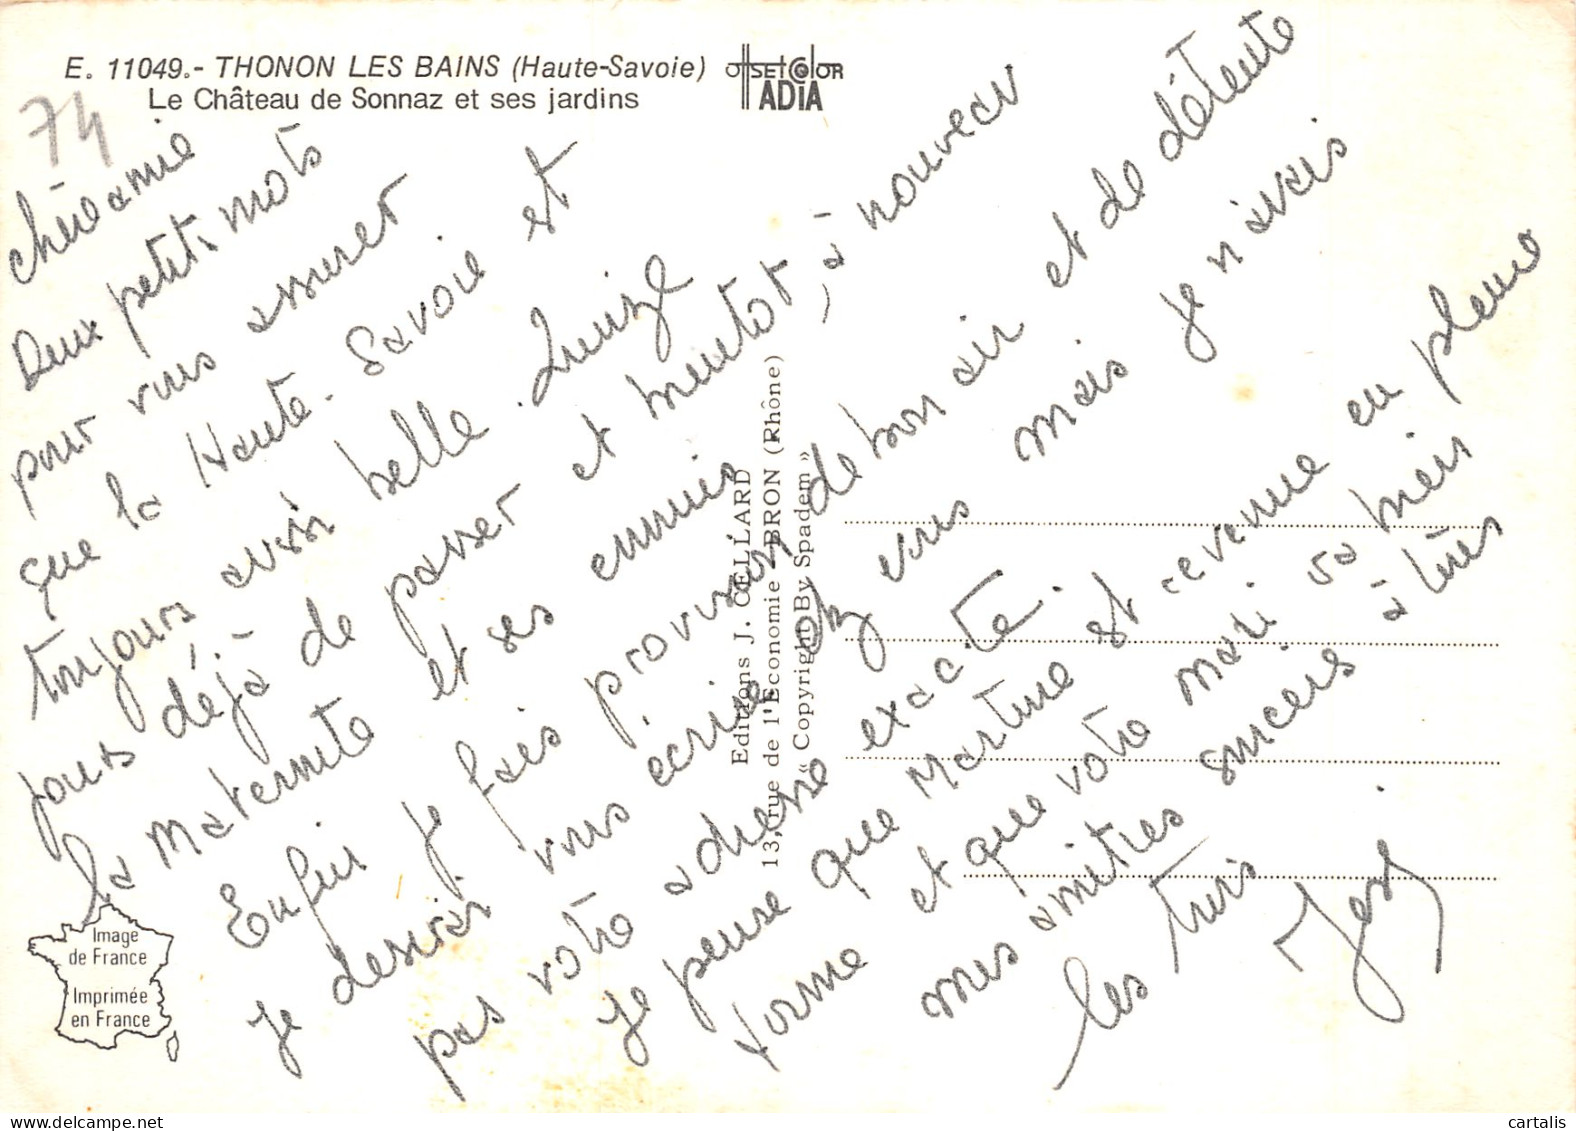 E. 11049.- THONON LES BAINS (Haute-Savoie)
Le Château de Sonnaz et ses jardins
OFFSETCOLOR
ADIA
74
chère amie
Deux petits mots
pour vous assurer
que la Haute-Savoie est
toujours aussi belle. Quinze
jours déjà de passer et bientôt, à nouveau
la Maternité et ses ennuis
Enfin je fais provision de bon air et de détente
je desirais vous écrire mais je n'avais
pas votre adresse exacte.
je pense que Martine est revenue en pleine
forme et que votre mari va bien
mes amitiés sincères à tous
les trois
Editions J. CELLARD
13, rue de l'Economie BRON (Rhône)
« Copyright By Spadem »
Image
de France
Imprimée
en France
cartalis
delcampe.net